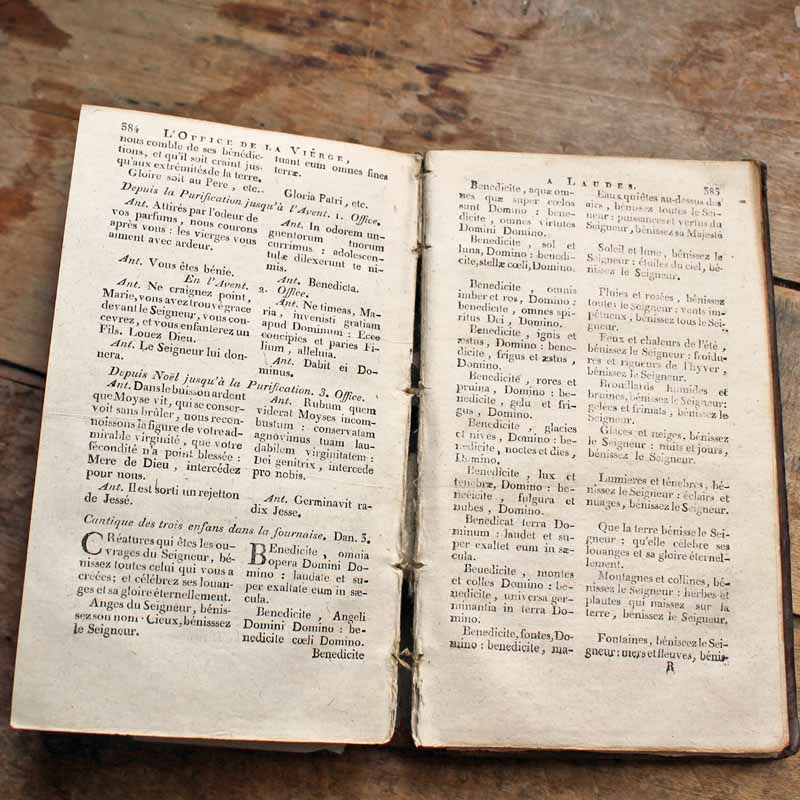 384 L'OFFICE DE LA VIERGE,
nous comble de ses bénédic-
tions, et qu'il soit craint jus-
qu'aux extrémités de la terre.
Gloire soit au Pere, etc..
tuant eum omnes fines
terræ.
Gloria Patri, etc.
Depuis la Purification jusqu'à l'Avent. 1. Office.
Ant. Attirés par l'odeur de
vos parfums, nous courons
après vous : les vierges vous
aiment avec ardeur.
Ant. In odorem un-
guentorum tuorum
currimus : adolescen-
tulæ dilexerunt te ni-
mis.
Ant. Vous êtes bénie.
Ant. Benedicta.
En l'Avent. 2. Office.
Ant. Ne craignez point,
Marie, vous avez trouvé grace
devant le Seigneur, vous con-
cevrez, et vous enfanterez un
Fils. Louez Dieu.
Ant. Le Seigneur lui don-
nera.
Ant. Ne timeas, Ma-
ria, invenisti gratiam
apud Dominum : Ecce
concipies et paries Fi-
lium, alleluia.
Ant. Dabit ei Do-
minus.
Depuis Noël jusqu'à la Purification. 3. Office.
Ant. Dans le buisson ardent
que Moyse vit, qui se conser-
voit sans brûler, nous recon-
noissons la figure de votre ad-
mirable virginité, que votre
fécondité n'a point blessée :
Mere de Dieu, intercédez
pour nous.
Ant. Il est sorti un rejetton
de Jessé.
Ant. Rubum quem
viderat Moyses incom-
bustum : conservatam
agnovimus tuam lau-
dabilem virginitatem :
Dei genitrix, intercede
pro nobis.
Ant. Germinavit ra-
dix Jesse.
Cantique des trois enfans dans la fournaise. Dan. 3.
CRéatures qui êtes les ou-
vrages du Seigneur, bé-
nissez toutes celui qui vous a
créées; et célébrez ses louan-
ges et sa gloire éternellement.
Anges du Seigneur, bénis-
sez son nom : Cieux, bénisssez
le Seigneur.
BEnedicite, omnia
opera Domini Do-
mino : laudate et su-
per exaltate eum in sæ-
cula.
Benedicite, Angeli
Domini Domino : be-
nedicite cœli Domino.
Benedicite
A LAUDES. 385
Benedicite, aquæ om-
nes quæ super cœlos
sunt Domino : bene-
dicite, omnes virtutes
Domini Domino.
Benedicite, sol et
luna, Domino : benedi-
cite, stellæ cœli, Domino.
Benedicite, omnis
imber et ros, Domino :
benedicite, omnes spi-
ritus Dei, Domino.
Benedicite, ignis et
æstus, Domino : bene-
dicite, frigus et æstus,
Domino.
Benedicite, rores et
pruina, Domino : be-
nedicite, gelu et fri-
gus, Domino.
Benedicite, glacies
et nives, Domino : be-
nedicite, noctes et dies,
Domino.
Benedicite, lux et
tenebræ, Domino : be-
nedicite, fulgura et
nubes, Domino.
Benedicat terra Do-
minum : laudet et su-
per exaltet eum in sæ-
cula.
Benedicite, montes
et colles Domino : be-
nedicite, universa ger-
minantia in terra Do-
mino.
Benedicite, fontes, Do-
mino : benedicite, ma-
Eaux qui êtes au-dessus des
airs, bénissez toutes le Sei-
neur : puissances et vertus du
Seigneur, bénissez sa Majesté
Soleil et lune, bénissez le
Seigneur : étoiles du ciel, bé-
nissez le Seigneur.
Pluies et rosées, bénissez
toutes le Seigneur : vents im-
pétueux, bénissez tous le Sei-
gneur.
Feux et chaleurs de l'été,
bénissez le Seigneur : froidu-
res et rigueurs de l'hyver,
bénissez le Seigneur.
Brouillards humides et
bruines, bénissez le Seigneur:
gelées et frimats, bénissez le
Seigneur.
Glaces et neiges, bénissez
le Seigneur : nuits et jours,
bénissez le Seigneur.
Lumieres et ténebres, bé-
nissez le Seigneur : éclairs et
nuages, bénissez le Seigneur.
Que la terre bénisse le Sei-
gneur ; qu'elle célebre ses
louanges et sa gloire éternel-
lement.
Montagnes et collines, bé-
nissez le Seigneur : herbes et
plantes qui naissez sur la
terre, bénissez le Seigneur.
Fontaines, bénissez le Sei-
gneur : mers et fleuves, bénis-
R